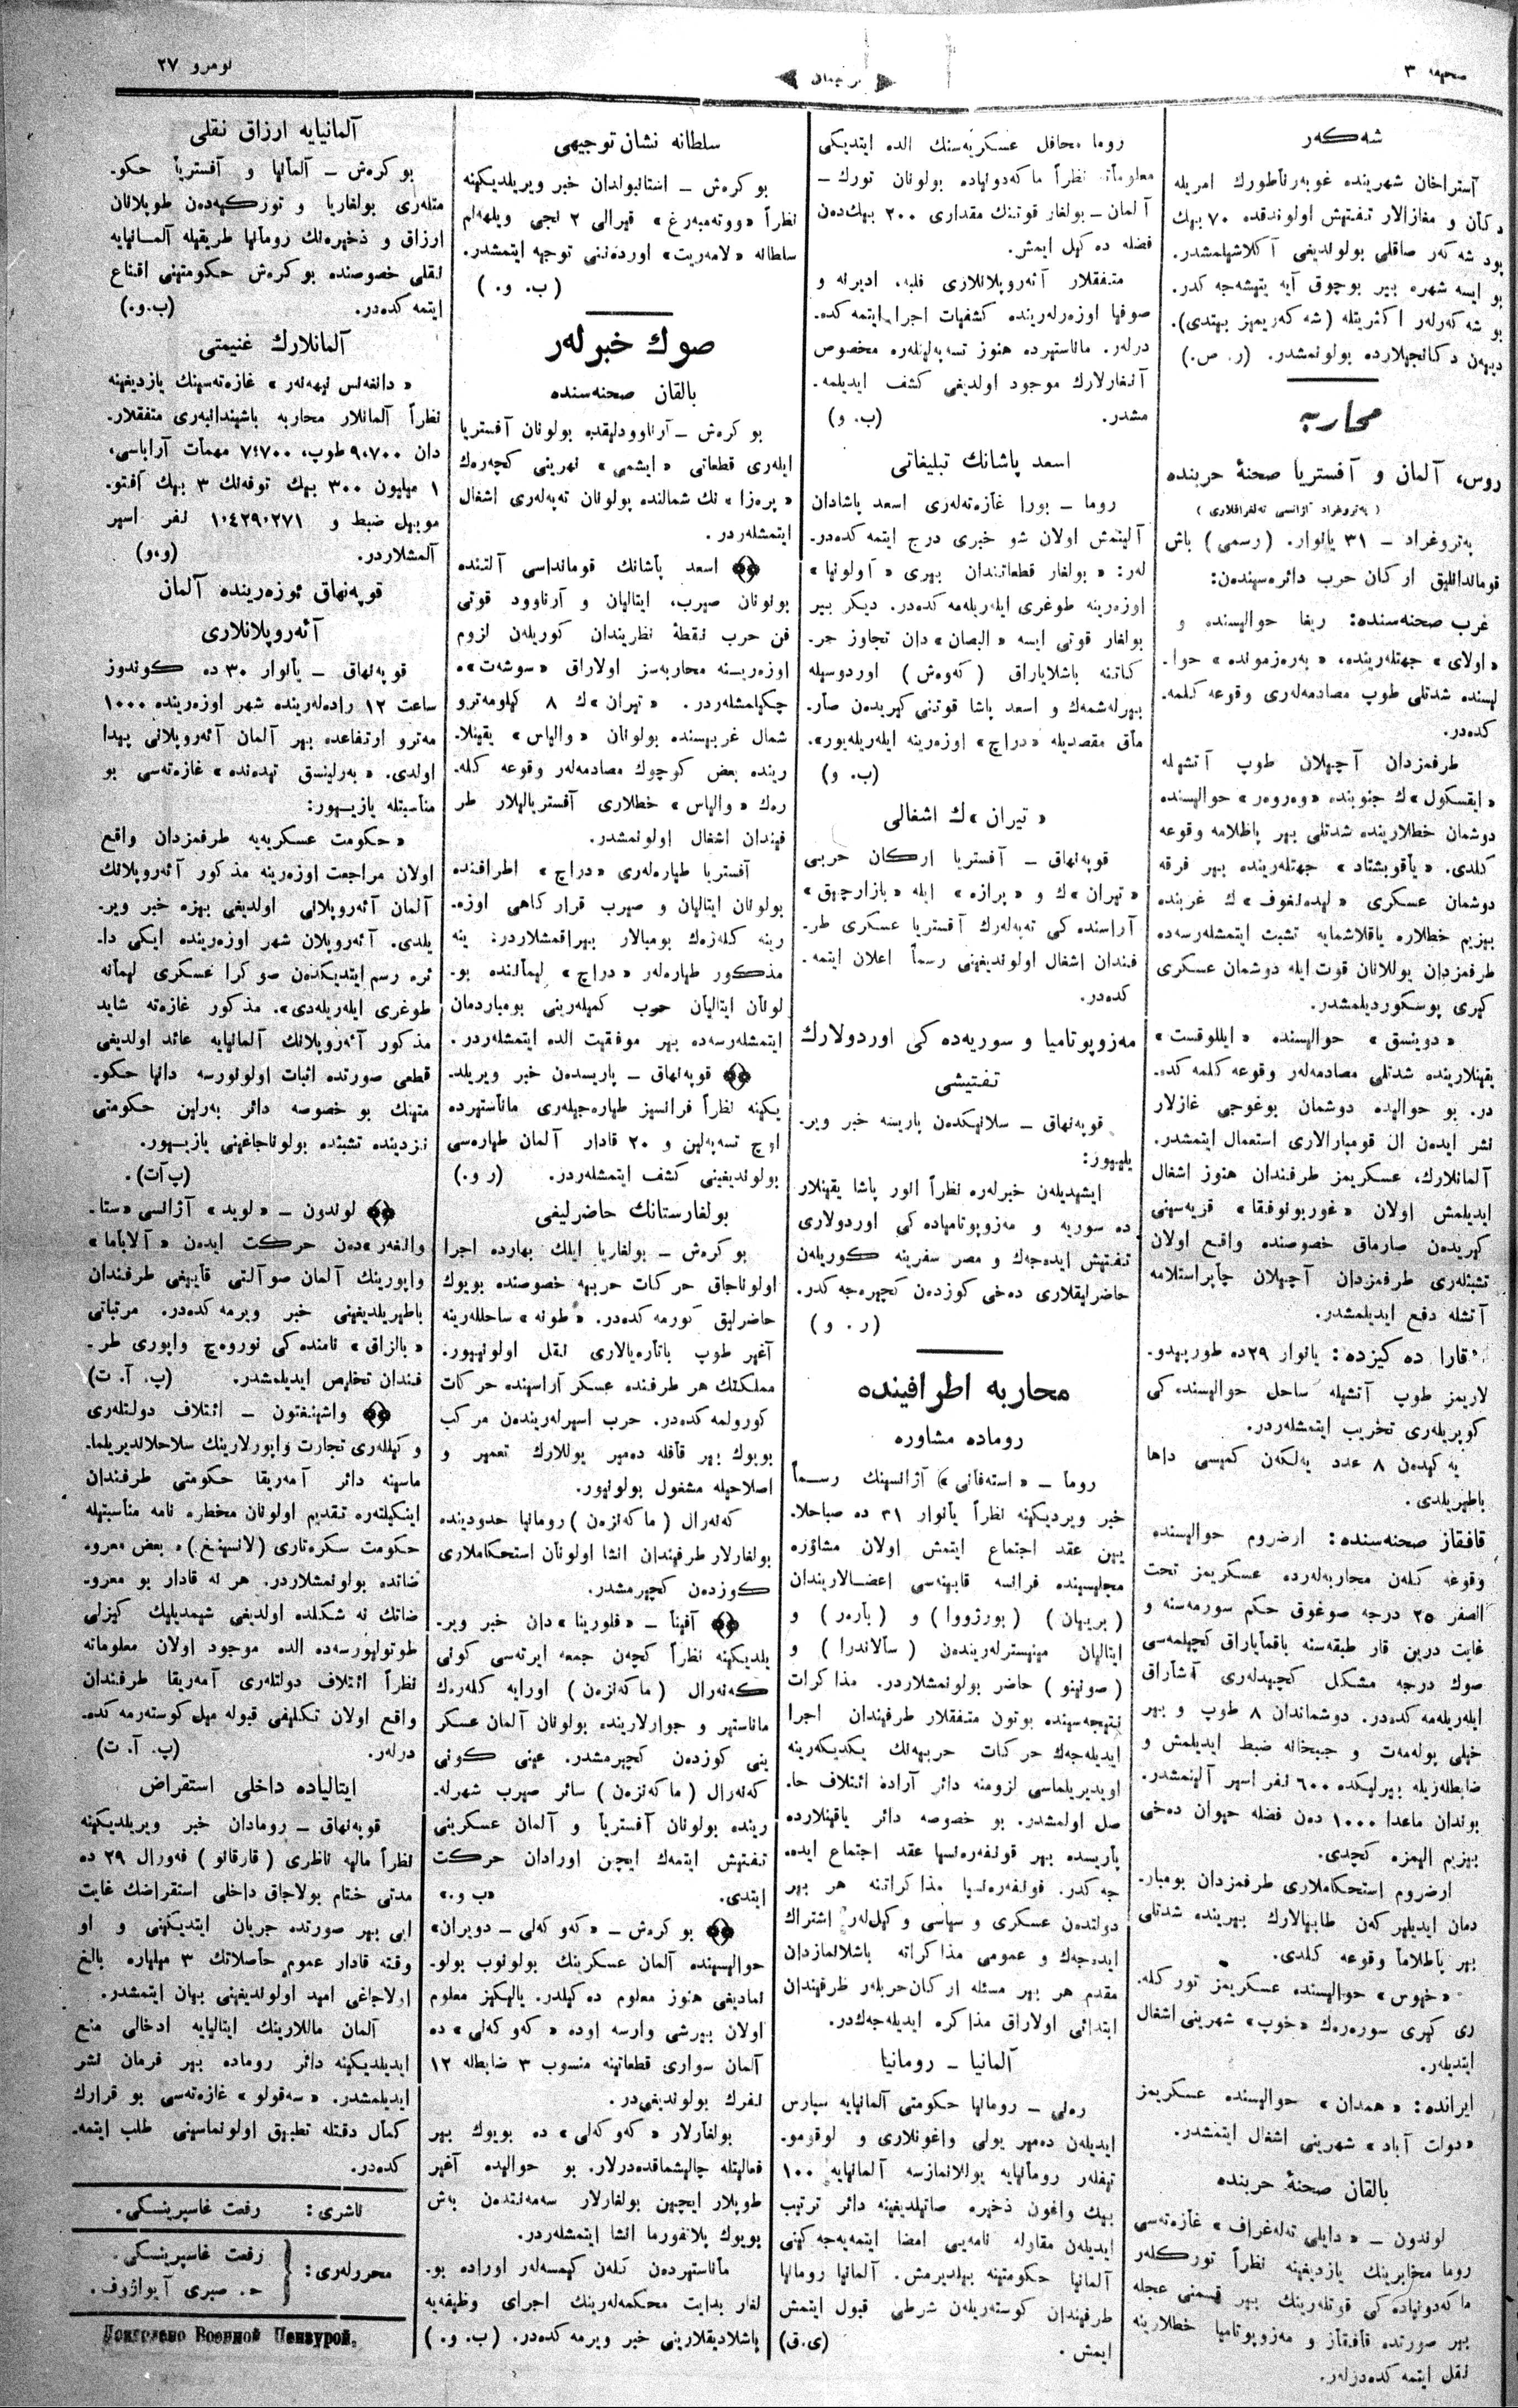 صحیفه ۳
ترجمان
نومرو ۲۷
شه‌كه‌ر
آستراخان شهرینده غوبه‌رناطورك امریله
دكان و مغازالار تفتیش اولوندقده ۷۰ بیك
پود شه‌كه‌ر صاقلی بولوندیغی آكلاشیلمشدر.
بو ایسه شهره بیر بوچوق آیه یتیشه‌جه‌كدر.
بو شه‌كه‌رلر اكثریتله (شه‌كه‌ریمیز بیتدی).
دییه‌ن دكانجیلارده بولونمشدر. (ر. ص.)
محاربه
روس، آلمان و آفستریا صحنهٔ حربنده
(په‌تروغراد آژانسی ته‌لغرافلاری)
په‌تروغراد – ۳۱ یانوار. (رسمی) باش
قوماندانلیق اركان حرب دائره‌سیندن:
غرب صحنه‌سنده: ریغا حوالیسنده و
«اولای» جهتله‌رینده، «به‌ره‌زمونده» حوا-
لیسنده شدتلی طوپ مصادمه‌له‌ری وقوعه كلمه-
كده‌در.
طرفمزدان آچیلان طوپ آتشیله
«ایقسكول»ك جنوبنده «وه‌روه‌ر» حوالیسنده
دوشمان خطلارینده شدتلی بیر پاطلامه وقوعه
كلدی. «یاقوبشتاد» جهتله‌رینده بیر فرقه
دوشمان عسكری «لیده‌نغوف»ك غربنده
بیزیم خطلاره یاقلاشمایه تشبث ایتمشله‌رسه‌ده
طرفمزدان یوللانان قوت ایله دوشمان عسكری
كیری پوسكوردیلمشدر.
«دوینسق» حوالیسنده «ایللوقست»
یقینلارینده شدتلی مصادمه‌لر وقوعه كلمه‌كده-
در. بو حوالیده دوشمان بوغوجی غازلار
نشر ایده‌ن ال قومبارالاری استعمال ایتمشدر.
آلمانلارك، عسكریمز طرفندان هنوز اشغال
ایدیلمش اولان «غوربونوفقا» قریه‌سینی
كیریدن صارماق خصوصنده واقع اولان
تشبثله‌ری طرفمزدان آچیلان چاپراستلامه
آتشله دفع ایدیلمشدر.
قارا ده‌كیزده: یانوار ۲۹ده طورپیدو-
لاریمز طوپ آتشیله ساحل حوالیسنده‌كی
كوپریله‌ری تخریب ایتمشله‌ردر.
یه‌كیدن ۸ عدد یه‌لكه‌ن كمیسی داها
باطیریلدی.
قافقاز صحنه‌سنده: ارضروم حوالیسنده
وقوعه كله‌ن محاربه‌له‌رده عسكریمز تحت
الصفر ۲۵ درجه صوغوق حكم سورمه‌سنه و
غایت درین قار طبقه‌سنه باقمایاراق كچیلمه‌سی
صوك درجه مشكل كچیدله‌ری آشاراق
ایله‌ریله‌مه‌كده‌در. دوشماندان ۸ طوپ و بیر
خیلی پوله‌مه‌ت و جبخانه ضبط ایدیلمش و
ضابطله‌ریله بیرلیكده ۶۰۰ نفر اسیر آلینمشدر.
بوندان ماعدا ۱۰۰۰ دن فضله حیوان ده‌خی
بیزیم الیمزه كچدی.
ارضروم استحكاملاری طرفمزدان بومبار-
دمان ایدیلیركه‌ن طابیالارك بیرینده شدتلی
بیر پاطلاما وقوعه كلدی.
«خنوس» حوالیسنده عسكریمز توركله-
ری كیری سوره‌ره‌ك «خوپ» شهرینی اشغال
ایتدیله‌ر.
ایرانده: «همدان» حوالیسنده عسكریمز
«دولت آباد» شهرینی اشغال ایتمشدر.
بالقان صحنهٔ حربنده
لوندون – «دایلی ته‌له‌غراف» غازه‌ته‌سی
روما مخابرینك یازدیغینه نظراً توركله‌ر
ماكه‌دونیاده‌كی قوتله‌رینك بیر قسمنی عجله
بیر صورتده قافقاز و مه‌زوپوتامیا خطلارینه
نقل ایتمه‌كده‌درله‌ر.
روما محافل عسكریه‌سنك الده ایتدیكی
معلوماته نظراً ماكه‌دونیاده بولونان تورك –
آلمان – بولغار قوتنك مقداری ۲۰۰ بیك‌دن
فضله ده‌كیل ایمش.
متفقلار آئه‌روپلانلاری فلبه، ادیرنه و
صوفیا اوزه‌رله‌رینده كشفیات اجرا ایتمه‌كده-
درله‌ر. ماناستیرده هنوز تسه‌په‌لینله‌ره مخصوص
آنغارلارك موجود اولدیغی كشف ایدیلمه-
مشدر. (ب. و)
اسعد پاشانك تبلیغاتی
روما – بورا غازه‌ته‌له‌ری اسعد پاشادان
آلینمش اولان شو خبری درج ایتمه‌كده‌در-
له‌ر: «بولغار قطعاتندان بیری «آولونیا»
اوزه‌رینه طوغری ایله‌ریله‌مه‌كده‌در. دیكر بیر
بولغار قوتی ایسه «البصان»دان تجاوز حر-
كاتنه باشلایاراق (كه‌وه‌ش) اوردوسیله
بیرله‌شمه‌ك و اسعد پاشا قوتنی كیریدن صار-
ماق مقصدیله «دراچ» اوزه‌رینه ایله‌ریله‌یور».
(ب. و)
«تیران»ك اشغالی
قوپه‌نهاق – آفستریا اركان حربی
«تیران»ك و «برازه» ایله «بازارچیق»
آراسنده‌كی ته‌په‌له‌رك آفستریا عسكری طر-
فندان اشغال اولوندیغینی رسماً اعلان ایتمه-
كده‌در.
مه‌زوپوتامیا و سوریه‌ده‌كی اوردولارك
تفتیشی
قوپه‌نهاق – سلانیكدن پاریسه خبر ویر-
یلییور:
ایشیدیله‌ن خبرله‌ره نظراً انور پاشا یقینلار-
ده سوریه و مه‌زوپوتامیاده‌كی اوردولاری
تفتیش ایده‌جه‌ك و مصر سفرینه كوریله‌ن
حاضرلیقلاری ده‌خی كوزدن كچیره‌جه‌كدر.
(ر. و)
محاربه اطرافینده
روماده مشاوره
روما – «استه‌فانی» آژانسینك رسماً
خبر ویردیكینه نظراً یانوار ۳۱ ده صباحلا-
یین عقد اجتماع ایتمش اولان مشاوره
مجلیسینده فرانسه قابینه‌سی اعضالاریندان
(برییان) (بورژووا) و (باره‌ر) و
ایتالیان مینیسترله‌ریندن (سالاندرا) و
(صونینو) حاضر بولونمشلاردر. مذاكرات
نتیجه‌سینده بوتون متفقلار طرفیندان اجرا
ایدیله‌جه‌ك حركات حربیه‌نك یكدیكه‌رینه
اویدیریلماسی لزومنه دائر آراده ائتلاف حا-
صل اولمشدر. بو خصوصه دائر یاقینلارده
پاریسده بیر قونفه‌ره‌نسیا عقد اجتماع ایده-
جه‌كدر. قونفه‌ره‌نسیا مذاكراتنه هر بیر
دولتدن عسكری و سیاسی وكیل‌له‌ر اشتراك
ایده‌جه‌ك و عمومی مذاكراته باشلانمازدان
مقدم هر بیر مسئله اركان‌حربله‌ر طرفیندان
ابتدائی اولاراق مذاكره ایدیله‌جه‌كدر.
آلمانیا – رومانیا
ره‌نی – رومانیا حكومتی آلمانیایه سپارس
ایدیله‌ن ده‌میر یولی واغونلاری و لوقومو-
تیفله‌ر رومانیایه یوللانمازسه آلمانیایه ۱۰۰
بیك واغون ذخیره صاتیلدیغینه دائر ترتیب
ایدیله‌ن مقاوله نامه‌یی امضا ایتمه‌یه‌جه‌كینی
آلمانیا حكومتینه بیلدیرمش. آلمانیا رومانیا
طرفیندان كوسته‌ریله‌ن شرطی قبول ایتمش
ایمش. (ی.ق)
سلطانه نشان توجیهی
بوكره‌ش – استانبولدان خبر ویریلدیكینه
نظراً «ووته‌مبه‌رغ» قیرالی ۲ نجی ویلهه‌لم
سلطانه «لامه‌ریت» اورده‌نینی توجیه ایتمشدر.
(ب. و.)
صوك خبرله‌ر
بالقان صحنه‌سنده
بوكره‌ش – آرناوودلیقده بولونان آفستریا
ایله‌ری قطعاتی «ایشمی» نهرینی كچه‌ره‌ك
«پره‌زا» نك شمالنده بولونان ته‌په‌له‌ری اشغال
ایتمشله‌ردر.
اسعد پاشانك قومانداسی آلتنده
بولونان صیرب، ایتالیان و آرناوود قوتی
فن حرب نقطهٔ نظریندان كوریله‌ن لزوم
اوزه‌رینه محاربه‌سز اولاراق «سوشه‌ت»ه
چكیلمشله‌ردر. «تیران»ك ۸ كیلومه‌ترو
شمال غربیسنده بولونان «والیاس» یقینلا-
رینده بعض كوچوك مصادمه‌له‌ر وقوعه كله-
ره‌ك «والیاس» خطلاری آفستریالیلار طر-
فیندان اشغال اولونمشدر.
آفستریا طیاره‌له‌ری «دراچ» اطرافنده
بولونان ایتالیان و صیرب قراركاهی اوزه-
رینه كله‌ره‌ك بومبالار بیراقمشلاردر: ینه
مذكور طیاره‌له‌ر «دراچ» لیماننده بو-
لونان ایتالیان حرب كمیله‌رینی بومباردمان
ایتمشله‌رسه‌ده بیر موفقیت الده ایتمشله‌ردر.
قوپه‌نهاق – پاریسدن خبر ویریلد-
یكینه نظراً فرانسیز طیاره‌جیله‌ری ماناستیرده
اوچ تسه‌په‌لین و ۲۰ قادار آلمان طیاره‌سی
بولوندیغینی كشف ایتمشله‌ردر. (ر و.)
بولغارستانك حاضرلیغی
بوكره‌ش – بولغاریا ایلك بهارده اجرا
اولوناجاق حركات حربیه خصوصنده بویوك
حاضرلیق كورمه‌كده‌در. «طونه» ساحللرینه
آغیر طوپ باتاره‌یالاری نقل اولونییور.
مملكتك هر طرفنده عسكر آراسینده حركات
كورولمه‌كده‌در. حرب اسیرله‌ریندن مركب
بویوك بیر قافله ده‌میر یوللارك تعمیر و
اصلاحیله مشغول بولونیور.
كه‌نه‌رال (ماكه‌نزه‌ن) رومانیا حدودینده
بولغارلار طرفیندان انشا اولونان استحكاملاری
كوزدن كچیرمشدر.
آفینا – «فلورینا»دان خبر ویر-
یلدیكینه نظراً كچه‌ن جمعه ایرته‌سی كونی
كه‌نه‌رال (ماكه‌نزه‌ن) اورایه كله‌ره‌ك
ماناستیر و جوارلارینده بولونان آلمان عسكر-
ینی كوزدن كچیرمشدر. عینی كونی
كه‌نه‌رال (ماكه‌نزه‌ن) سائر صیرب شهرله-
رینده بولونان آفستریا و آلمان عسكرینی
تفتیش ایتمه‌ك ایچین اورادان حركت
ایتدی. «ب و.»
بوكره‌ش – «كه‌وكه‌لی – دویران»
حوالیسینده آلمان عسكرینك بولونوب بولو-
نمادیغی هنوز معلوم ده‌كیلدر. یالیكیز معلوم
اولان بیرشی وارسه اوده «كه‌وكه‌لی»ده
آلمان سواری قطعاتینه منسوب ۳ ضابطله ۱۲
نفرك بولوندیغی‌در.
بولغارلار «كه‌وكه‌لی» ده بویوك بیر
فعالیتله چالیشماقده‌درلار. بو حوالیده آغیر
طوپلار ایچین بولغارلار سه‌مه‌نتدن بش
بویوك پلاتفورما انشا ایتمشله‌ردر.
ماناستیردن كله‌ن كیمسه‌له‌ر اوراده بو-
لغار بدایت محكمه‌له‌رینك اجرای وظیفه‌یه
باشلادیقلارینی خبر ویرمه‌كده‌در. (ب. و.)
آلمانیایه ارزاق نقلی
بوكره‌ش – آلمانیا و آفستریا حكو-
متله‌ری بولغاریا و توركیه‌دن طوپلانان
ارزاق و ذخیره‌نك رومانیا طریقیله آلمانیایه
نقلی خصوصنده بوكره‌ش حكومتینی اقناع
ایتمه‌كده‌در. (ب.و.)
آلمانلارك غنیمتی
«داغه‌نس نیهه‌ته‌ر» غازه‌ته‌سینك یازدیغینه
نظراً آلمانلار محاربه باشیندانبه‌ری متفقلار-
دان ۹،۷۰۰ طوپ، ۷،۷۰۰ مهمات آراباسی،
۱ میلیون ۳۰۰ بیك توفه‌نك ۳ بیك آفتو-
موبیل ضبط و ۱،۴۲۹،۲۷۱ نفر اسیر
آلمشلاردر. (و،و)
قوپه‌نهاق ئوزه‌رینده آلمان
آئه‌روپلانلاری
قوپه‌نهاق – یانوار ۳۰ ده كوندوز
ساعت ۱۲ راده‌له‌رینده شهر اوزه‌رینده ۱۰۰۰
مه‌ترو ارتفاعده بیر آلمان آئه‌روپلانی پیدا
اولدی. «به‌رلینسق تیده‌نده» غازه‌ته‌سی بو
مناسبتله یازییور:
«حكومت عسكریه‌یه طرفمزدان واقع
اولان مراجعت اوزه‌رینه مذكور آئه‌روپلانك
آلمان آئه‌روپلانی اولدیغی بیزه خبر ویر-
یلدی. آئه‌روپلان شهر اوزه‌رینده ایكی دا-
ئره رسم ایتدیكدن صوكرا عسكری لیمانه
طوغری ایله‌ریله‌دی». مذكور غازه‌ته شاید
مذكور آئه‌روپلانك آلمانیایه عائد اولدیغی
قطعی صورتده اثبات اولونورسه دانیا حكو-
متینك بو خصوصه دائر به‌رلین حكومتی
نزدینده تشبثده بولوناجاغینی یازییور.
(پ‌.آت).
لوندون – «لوید» آژانسی «ستا-
وانغه‌ر»دن حركت ایده‌ن «آلاباما»
واپورینك آلمان صوآلتی قاییغی طرفندان
باطیریلدیغینی خبر ویرمه‌كده‌در. مرتباتی
«بالزاق» نامنده‌كی نوروه‌چ واپوری طر-
فندان تخلیص ایدیلمشدر. (پ. آ. ت)
واشینغتون – ائتلاف دولتله‌ری
وكیلله‌ری تجارت واپورلارینك سلاحلاندیریلما-
ماسینه دائر آمه‌ریقا حكومتی طرفندان
اینكیلته‌ره تقدیم اولونان مخطره نامه مناسبتیله
حكومت سكره‌تاری (لانسینغ)ه بعض معرو-
ضاتده بولونمشلاردر. هر نه قادار بو معرو-
ضاتك نه شكلده اولدیغی شیمدیلیك كیزلی
طوتولیورسه‌ده الده موجود اولان معلوماته
نظراً ائتلاف دولتله‌ری آمه‌ریقا طرفندان
واقع اولان تكلیفی قبوله میل كوسته‌رمه‌كده-
درله‌ر. (پ. آ. ت)
ایتالیاده داخلی استقراض
قوپه‌نهاق – رومادان خبر ویریلدیكینه
نظراً مالیه ناظری (قارقانو) فه‌ورال ۲۹ ده
مدتی ختام بولاجاق داخلی استقراضك غایت
ایی بیر صورتده جریان ایتدیكینی و او
وقته قادار عموم حاصلاتك ۳ میلیاره بالغ
اولاجاغی امید اولوندیغینی بیان ایتمشدر.
آلمان ماللارینك ایتالیایه ادخالی منع
ایدیلدیكینه دائر روماده بیر فرمان نشر
ایدیلمشدر. «سه‌قولو» غازه‌ته‌سی بو قرارك
كمال دقتله تطبیق اولونماسینی طلب ایتمه-
كده‌در.
ناشری: رفعت غاسپرینسكی.
محررله‌ری: رفعت غاسپرینسكی.
ح. صبری آیوازوف.
Дозволено Военной Цензурой.